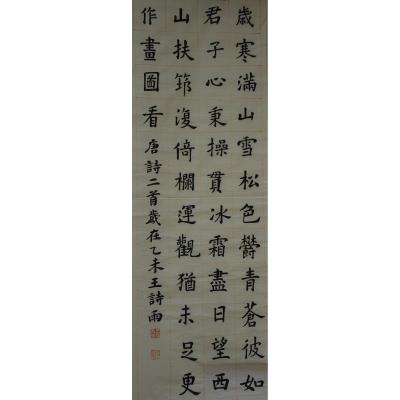 歲寒滿山雪松色鬱青蒼彼如
君子心秉操貫冰霜盡日望西
山扶筇復倚欄運觀猶未足更
作畫圖看
唐詩二首歲在乙未王詩雨